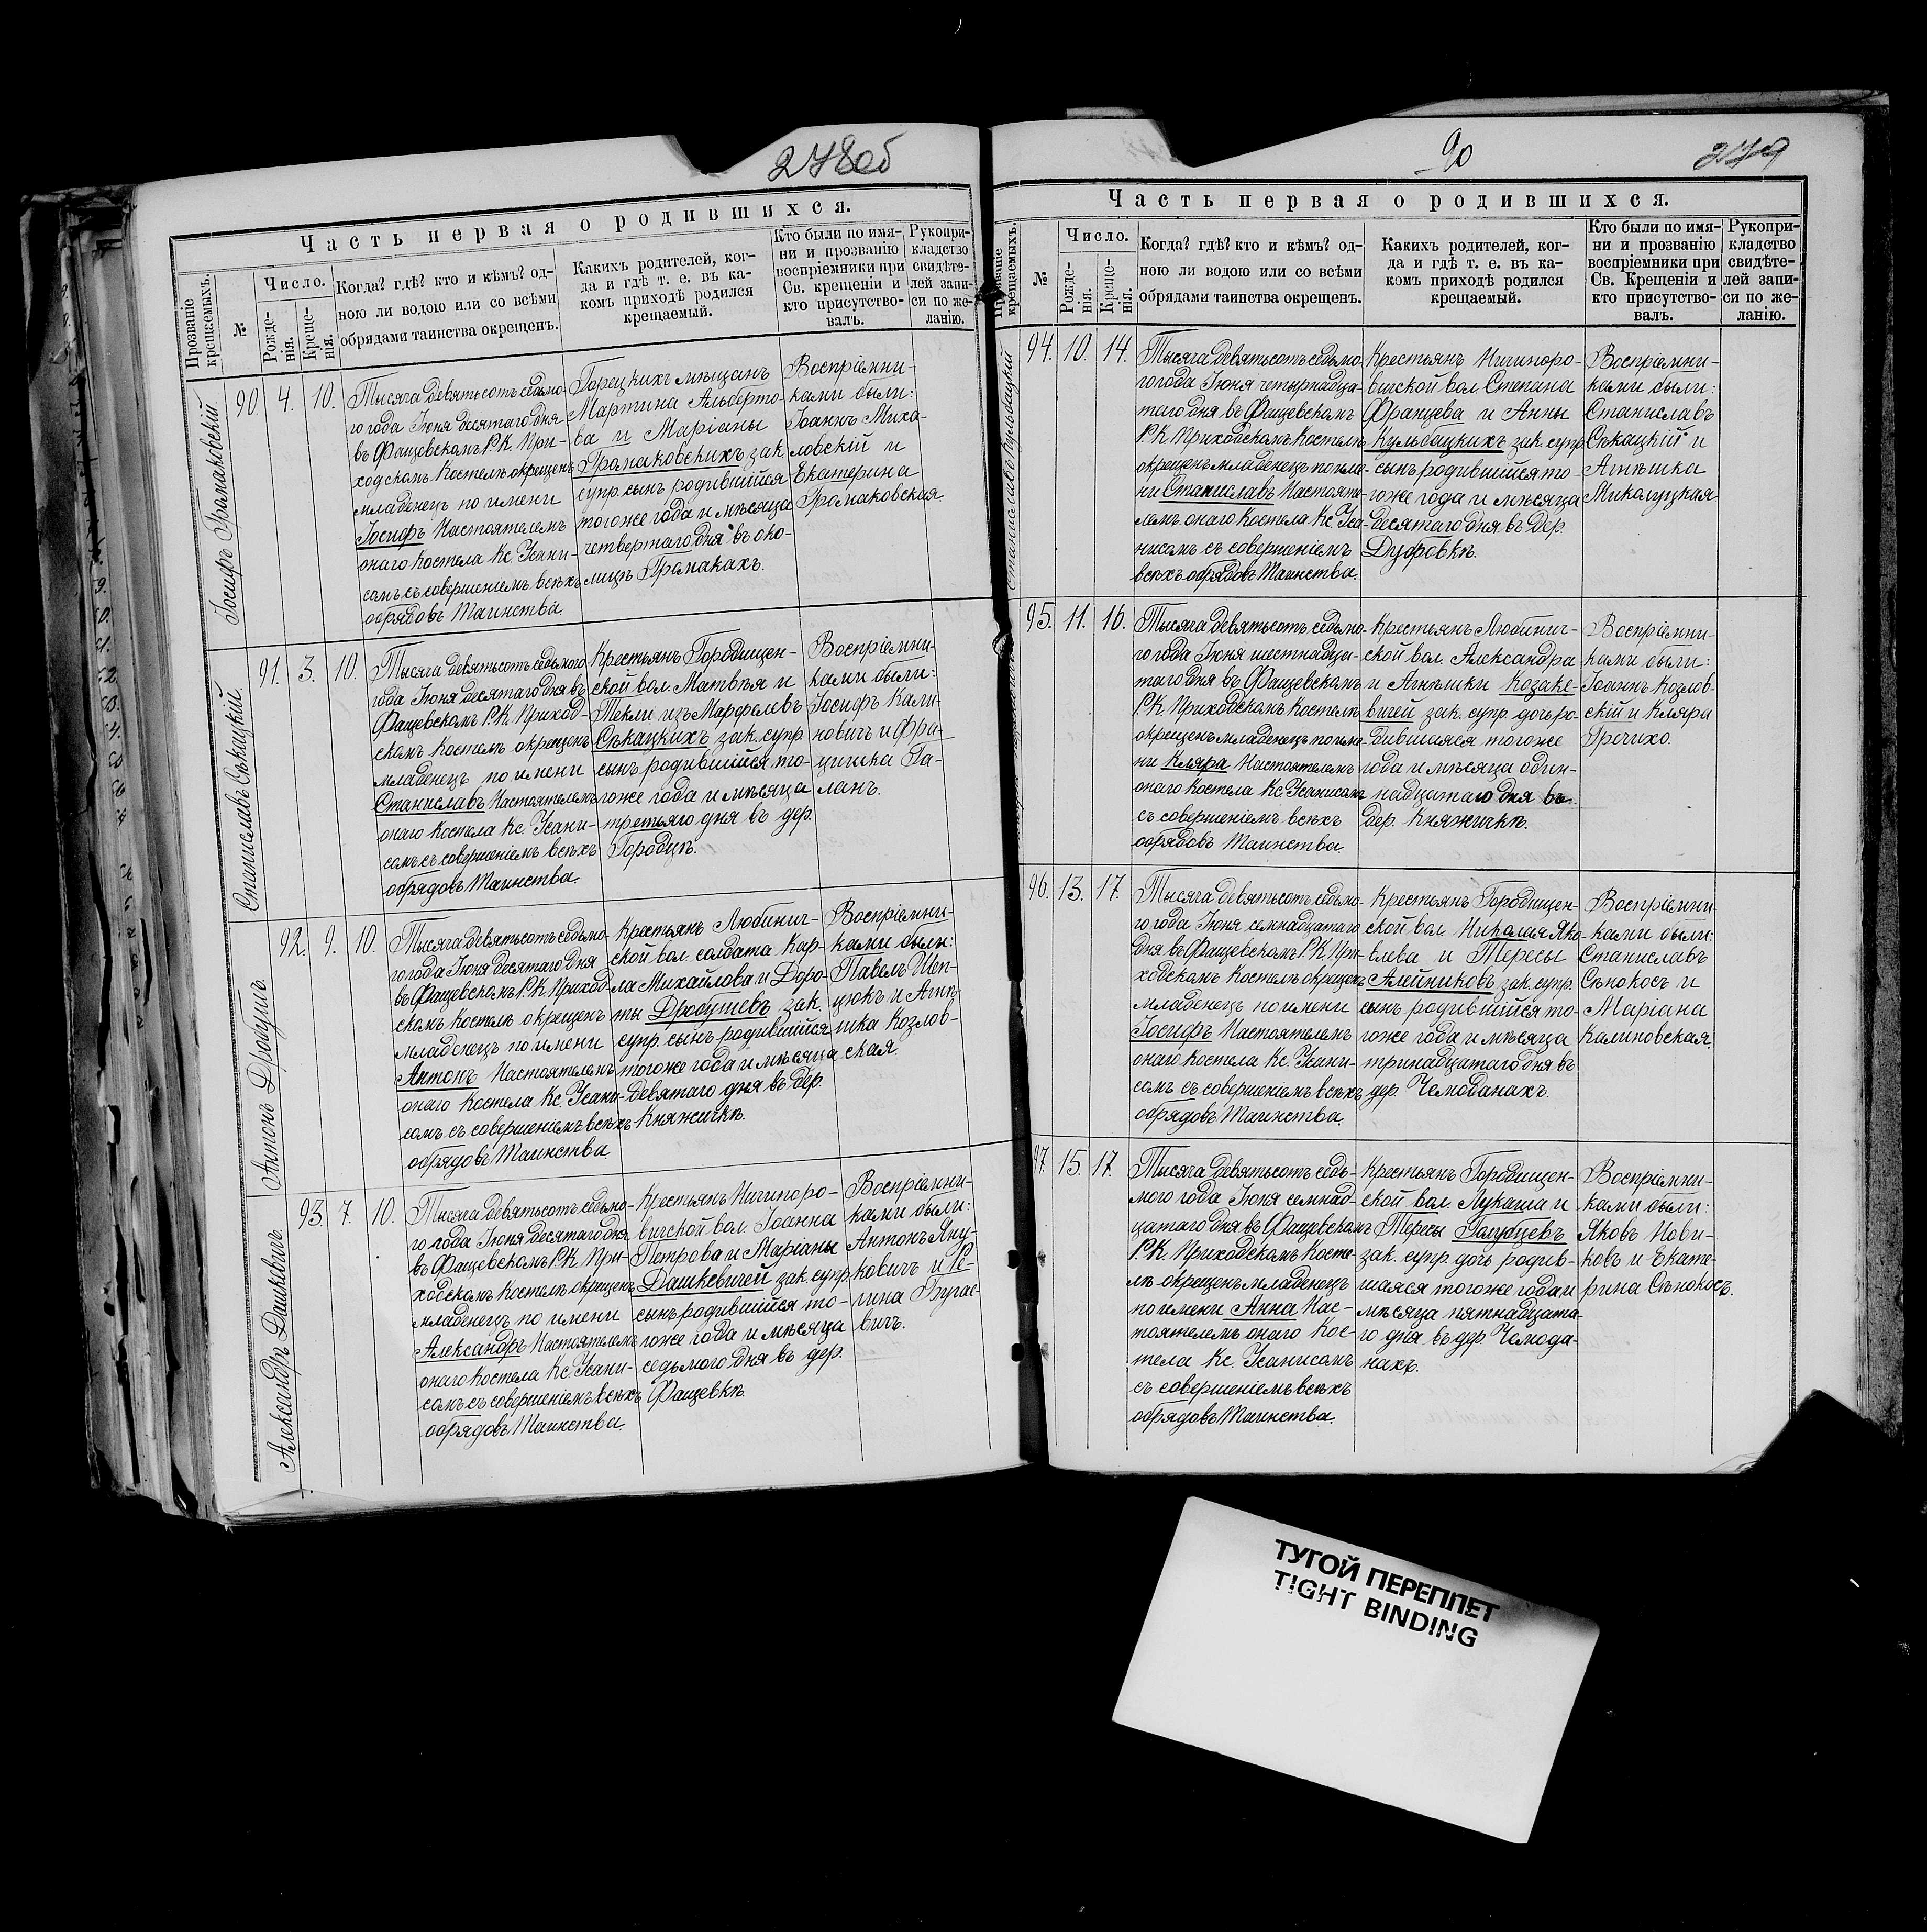 278об
Часть первая о родившихся.
Прозваніе крещаемыхъ.
№
Число.
Рожде-
нія.
Креще-
нія.
Когда? гдѣ? кто и кѣмъ? од-
ною ли водою или со всѣми
обрядами таинства окрещенъ.
Какихъ родителей, ког-
да и гдѣ т. е. въ ка-
комъ приходѣ родился
крещаемый.
Кто были по имя-
ни и прозванію
воспріемники при
Св. крещеніи и
кто присутство-
валъ.
Рукопри-
кладство
свидѣте-
лей запи-
си по же-
ланію.
Іосифъ Громаковскій
90. 4. 10.
Тысяча девятьсотъ седьмо-
го года Іюня десятаго дня
въ Фащевскомъ Р.К. При-
ходскомъ Костелѣ окрещенъ
младенецъ по имени
Іосифъ Настоятелемъ
онаго Костела Кс. Усани-
сомъ съ совершеніемъ всѣхъ
обрядовъ Таинства.
Горецкихъ мѣщанъ
Мартина Альберто-
ва и Маріаны
Громаковскихъ зак.
супр. сынъ родившійся
тогоже года и мѣсяца
четвертаго дня въ око-
лицѣ Громакахъ.
Воспріемни-
ками были:
Іоаннъ Миха-
ловскій и
Екатерина
Громаковская.
Станиславъ Сѣкацкій.
91. 3. 10.
Тысяча девятьсотъ седьмого
года Іюня десятаго дня въ
Фащевскомъ Р.К. Приход-
скомъ Костелѣ окрещенъ
младенецъ по имени
Станиславъ Настоятелемъ
онаго Костела Кс. Усани-
сомъ съ совершеніемъ всѣхъ
обрядовъ Таинства.
Крестьянъ Городищен-
ской вол. Матвѣя и
Текли изъ Марфелевъ
Сѣкацкихъ зак. супр.
сынъ родившійся то-
гоже года и мѣсяца
третьяго дня въ дер.
Городцѣ.
Воспріемни-
ками были:
Іосифъ Кали-
новичъ и Фра-
цишка Га-
ланъ.
Антонъ Дробушъ
92. 9. 10.
Тысяча девятьсотъ седьмо-
го года Іюня десятаго дня
въ Фащевскомъ Р.К. Приход-
скомъ Костелѣ окрещенъ
младенецъ по имени
Антонъ Настоятелемъ
онаго Костела Кс. Усани-
сомъ съ совершеніемъ всѣхъ
обрядовъ Таинства.
Крестьянъ Любинич-
ской вол. солдата Кар-
ла Михайлова и Доро-
ты Дробушевъ зак.
супр. сынъ родившійся
тогоже года и мѣсяца
девятаго дня въ дер.
Княжичкѣ.
Воспріемни-
ками были:
Павелъ Шеп-
цюкъ и Агнѣ-
шка Козлов-
ская.
Александръ Дашкевичъ.
93. 7. 10.
Тысяча девятьсотъ седьмо-
го года Іюня десятаго дня
въ Фащевскомъ Р.К. При-
ходскомъ Костелѣ окрещенъ
младенецъ по имени
Александръ Настоятелемъ
онаго Костела Кс. Усани-
сомъ съ совершеніемъ всѣхъ
обрядовъ Таинства.
Крестьянъ Ничипоро-
вичской вол. Іоанна
Петрова и Маріаны
Дашкевичей зак. супр.
сынъ родившійся то-
гоже года и мѣсяца
седьмого дня въ дер.
Фащевкѣ.
Воспріемни-
ками были:
Антонъ Яну-
ковичъ и Ре-
гина Бугас-
вичъ.
90
279
Часть первая о родившихся.
Прозваніе крещаемыхъ.
№
Число.
Рожде-
нія.
Креще-
нія.
Когда? гдѣ? кто и кѣмъ? од-
ною ли водою или со всѣми
обрядами таинства окрещенъ.
Какихъ родителей, ког-
да и гдѣ т. е. въ ка-
комъ приходѣ родился
крещаемый.
Кто были по имя-
ни и прозванію
воспріемники при
Св. Крещеніи и
кто присутство-
валъ.
Рукопри-
кладство
свидѣте-
лей запи-
си по же-
ланію.
Станиславъ Кульбацкій
94. 10. 14.
Тысяча девятьсотъ седьмо-
го года Іюня четырнадца-
таго дня въ Фащевскомъ
Р.К. Приходскомъ Костелѣ
окрещенъ младенецъ по име-
ни Станиславъ Настояте-
лемъ онаго Костела Кс. Уса-
нисомъ съ совершеніемъ
всѣхъ обрядовъ Таинства.
Крестьянъ Ничипоро-
вичской вол. Степана
Францева и Анны
Кульбацкихъ зак. супр.
сынъ родившійся то-
гоже года и мѣсяца
десятаго дня въ дер.
Дубровкѣ.
Воспріемни-
ками были:
Станиславъ
Сѣкацкій и
Агнѣшка
Миколуцкая
95. 11. 16.
Тысяча девятьсотъ седьмо-
го года Іюня шестнадца-
таго дня въ Фащевскомъ
Р.К. Приходскомъ Костелѣ
окрещенъ младенецъ по име-
ни Кляра Настоятелемъ
онаго Костела Кс. Усанисомъ
съ совершеніемъ всѣхъ
обрядовъ Таинства.
Крестьянъ Любинич-
ской вол. Александра
и Агнѣшки Козаке-
вичей зак. супр. дочь ро-
дившаяся тогоже
года и мѣсяца один-
надцатаго дня въ
дер. Княжичкѣ.
Воспріемни-
ками были:
Іоаннъ Козлов-
скій и Кляра
Гречихо.
96. 13. 17.
Тысяча девятьсотъ седьмо-
го года Іюня семнадцатаго
дня въ Фащевскомъ Р.К. При-
ходскомъ Костелѣ окрещенъ
младенецъ по имени
Іосифъ Настоятелемъ
онаго Костела Кс. Усани-
сомъ съ совершеніемъ всѣхъ
обрядовъ Таинства.
Крестьянъ Городищен-
ской вол. Николая Яко-
влева и Тересы
Алейниковъ зак. супр.
сынъ родившійся то-
гоже года и мѣсяца
тринадцатаго дня въ
дер. Чемоданахъ.
Воспріемни-
ками были:
Станиславъ
Сѣнокосъ и
Маріана
Калиновская.
97. 15. 17.
Тысяча девятьсотъ седь-
мого года Іюня семнад-
цатаго дня въ Фащевскомъ
Р.К. Приходскомъ Косте-
лѣ окрещенъ младенецъ
по имени Анна Нас-
тоятелемъ онаго Кос-
тела Кс. Усанисомъ
съ совершеніемъ всѣхъ
обрядовъ Таинства.
Крестьянъ Городищен-
ской вол. Лукаша и
Тересы Голубцевъ
зак. супр. дочь родив-
шаяся тогоже года и
мѣсяца пятнадцата-
го дня въ дер. Чемода-
нахъ.
Воспріемни-
ками были:
Яковъ Нови-
ковъ и Екате-
рина Сѣнокосъ.
ТУГОЙ ПЕРЕПЛЕТ
TIGHT BINDING